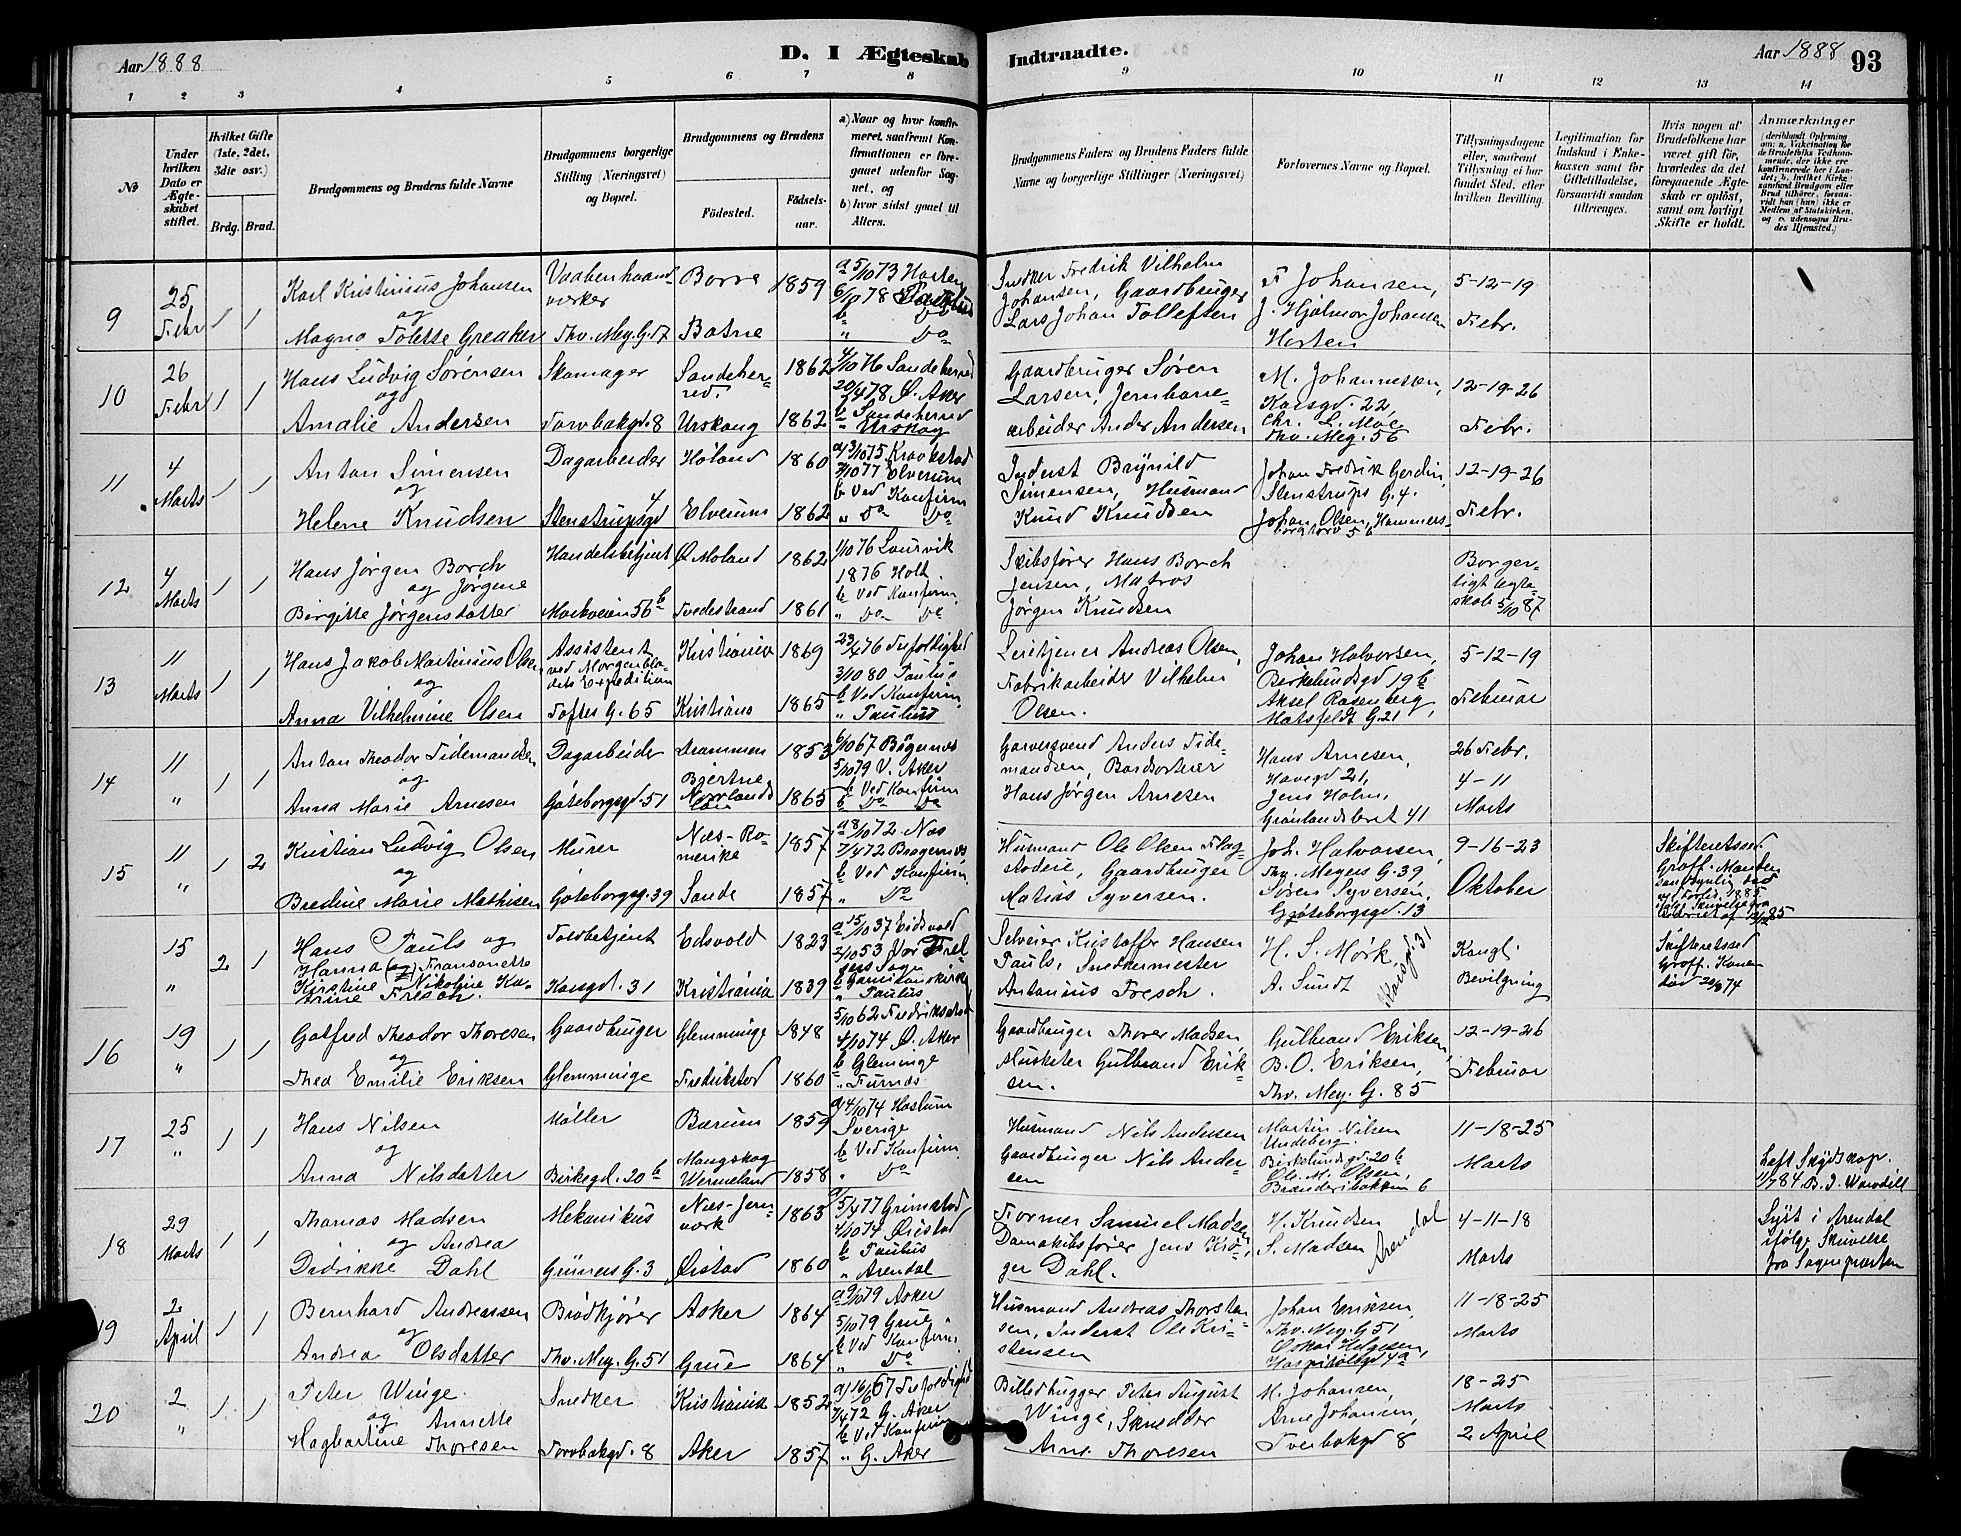 Aar 1888
D. I Ægteskab
Indtraadte.
Aar 1888
93
1 2 3 4 5 6 7 8 9 10 11 12 13 14
No
Under hvilken Dato er Ægteskabet stiftet.
Hvilket Gifte (1ste, 2det, 3die osv.)
Brdg. Brud.
Brudgommens og Brudens fulde Navne
Brudgommens borgerlige Stilling (Næringsvei) og Bopæl.
Brudgommens og Brudens
Födested.
Födselsaar.
a) Naar og hvor konfirmeret, saafremt Konfirmationen er foregaaet udenfor Sognet, og
b) hvor sidst gaaet til Alters.
Brudgommens Faders og Brudens Faders fulde Navne og borgerlige Stillinger (Næringsvei)
Forlovernes Navne og Bopæl.
Tillysningsdagene eller, saafremt Tillysning ei har fundet Sted, efter hvilken Bevilling.
Legitimation for Indskud i Enkekassen samt for Giftetilladelse, forsaavidt saadan tiltrænges.
Hvis nogen af Brudefolkene har været gift för, hvorledes da det foregaaende Ægteskab er oplöst, samt om lovligt Skifte er holdt.
Anmærkninger
9
25 Febr
1 1
Karl Kristinius Johansen
og
Magna Tolette Greaker
Vaabenhaandverker
Thv. Mey. G. 17
Borre 1859
Botne
a 5/10 73 Horten
6/10 78 Paulus
b Do
" Do
Snedker Fredrik Vilhelm
Johansen, Gaardbruger
Lars Johan Tollefsen
F Johansen,
J. Hjalmar Johansen
Horten
5-12-19
Febr.
10
26 Febr
1 1
Hans Ludvig Sørensen
og
Amalie Andersen
Skomager
Torvbakgd. 8
Sandeherred. 1862
Urskoug 1862
1/10 76 Sandeherred
20/4 78 Ø. Aker
b Sandeherred
" Urskog
Gaardbruger Søren
Larsen, Jernbanearbeider Ander Andersen
M. Johannessen,
Korsgd. 22,
Chr. L. Moe
Thv. Meg. 56
12-19-26
Febr.
11
4 Marts
1 1
Anton Simensen
og
Helene Knudsen
Dagarbeider
Stenstrupsgd 4
Høland 1860
Elverum 1862
a 3/10 75 Kraakstad
7/10 77 Elverum
b Ved Konfirm
" Do Do
Inderst Brynild
Simensen, Husmand
Knud Knudsen
Johan Fredrik Gerdin,
Stenstrups G. 4.
Johan Olsen, Hammersborgtorv 56
12-19-26
Febr.
12
4 Marts
1 1
Hans Jørgen Borch
og Jørgine
Birgitte Jørgensdatter
Handelsbetjent
Markveien 56 b
Ø Moland 1862
Tvedestrand 1861
1/10 76 Laurvik
1876 Holt.
b Ved Konfirm.
" Do Do
Skibsfører Hans Borch
Jensen, Matros
Jørgen Knudsen
Borgerligt Ægteskab 5/10 87
13
11 Marts
1 1
Hans Jakob Martinius Olsen
og
Anna Vilhelmine Olsen
Assistent
ved Morgenbladets Expedition
Toftes G. 65
Kristiania 1869
Kristiania 1865
23/4 76 Trefoldighed
3/10 80 Paulus
b Ved Konfirm.
" Paulus
Leietjener Andreas Olsen,
Fabrikarbeider Vilhelm
Olsen.
Johan Halvorsen,
Birkelundsgd 19 b
Aksel Rosenberg,
Motzfeldt G. 21
5-12-19
Februar
14
11 "
1 1
Anton Theodor Tidemandsen
og
Anna Marie Arnesen
Dagarbeider
Göteborgsgd. 51
Drammen 1853
Norrlands län 1865
6/10 67 Bragernes
5/10 79 V. Aker
b Ved Konfirm
b Do Do
Garversvend Anders Tidemandsen, Bordsorterer
Hans Jørgen Arnesen
Hans Arnesen,
Havegd 21,
Jens Holm,
Grønlandsleret 41
26 Febr.
4-11
Marts
15
11 "
1 2
Kristian Ludvig Olsen
og
Bredine Marie Mathisen
Murer
Göteborgsg. 39
Næs-Romerike 1857
Sande 1857
a 8/10 72 Næs
7/4 72 Bragernes
b Ved Konfirm.
" Do
Husmand Ole Olsen Flogstaderie, Gaardbruger
Matias Syversen.
Joh. Halvorsen,
Thv. Meyers G. 39
Søren Syversen,
Gjøteborgsgd. 13
9-16-23
Oktober
Skifteretssed.
16
15 "
2 1
Hans Pauls og
Hanna (og) Fransonette
Kirstine Nikoline Katrine Fresch.
Toldbetjent
Korsgd. 31
Eidsvold 1823
Kristiania 1839
a 15/10 37 Eidsvold
2/10 53 Vor Frelsers Sogn
b Garnisonskirke
" Paulus
Selveier Kristoffer Hansen
Pauls, Snedkermester
Antonius Fresch.
H. S. Mørk,
A. Sundt
Korsgd. 31
Kongl.
Bevilgning
Skifteretssed
Groff. Konen
død 20/8 74
16
19 "
1 1
Gotfred Theodor Thoresen
og
Thea Emilie Eriksen
Gaardbruger
Glemminge
Glemminge 1848
Fredrikstad 1860
5/10 62 Fredrikstad
4/10 74 Ø. Aker
b Gleminge
" Furnæs
Gaardbruger Thorer Madsen
Musketer Gulbrand Eriksen.
Gulbrand Eriksen,
B. O. Eriksen,
Thv. Mey. G. 85
12-19-26
Februar
17
25 "
1 1
Hans Nilsen
og
Anna Nilsdatter
Møller
Birkegd. 20 b
Bærum 1859
Mangskog
Wermeland 1858
a 4/10 74 Haslum
Sverige
b Ved Konfirm.
" Do
Husmand Nils Andersen
Gaardbruger Nils Andersen
Martin Nilsen
Undeberg.
Birkelundsgd. 20 b
Ole M. Olsen,
Brænderibakken 6
11-18-25
Marts
18
29 Marts
1 1
Thomas Madsen
og Andrea
Didrikke Dahl
Mekanikus
Grüners G. 3
Næs-Jernverk 1863
Øistad 1860
a 5/4 77 Grimstad
4/10 74 Øiestad
b Paulus
" Arendal
Former Samuel Madsen
Damskibsfører Jens Krøger Dahl.
H. Knudsen
S. Madsen
Arendal
4-11-18
Marts
Lyst i Arendal
ifølge Skrivelse
fra Sognepræsten
19
2 April
1 1
Bernhard Andreassen
og
Andrea Olsdatter
Brødkjører
Thv. Mey. G. 51
Asker 1864
Grue 1864
a 9/10 79 Asker
5/10 79 Grue
b Ved Konfirm.
" Do
Husmand Andreas Thorstensen, Inderst Ole Kristensen
Johan Eriksen,
Thv. Mey. G 51
Oskar Helgesen,
Hospitalsgd 4a
11-18-25
Marts
20
2 "
1 1
Peter Winge.
og Annette
Hagbartine Thoresen
Snedker
Torvbakgd. 8
Kristiania 1852
Aker 1857
a 16/6 67 Trefoldighed
7/4 72 G. Aker
b Ved Konfirm
" G. Aker
Billedhugger Peter August
Winge, Skrædder
Arne Thoresen
M. Johansen,
Arne Johansen,
Torvbakgd 8
18-25
Marts
2 April